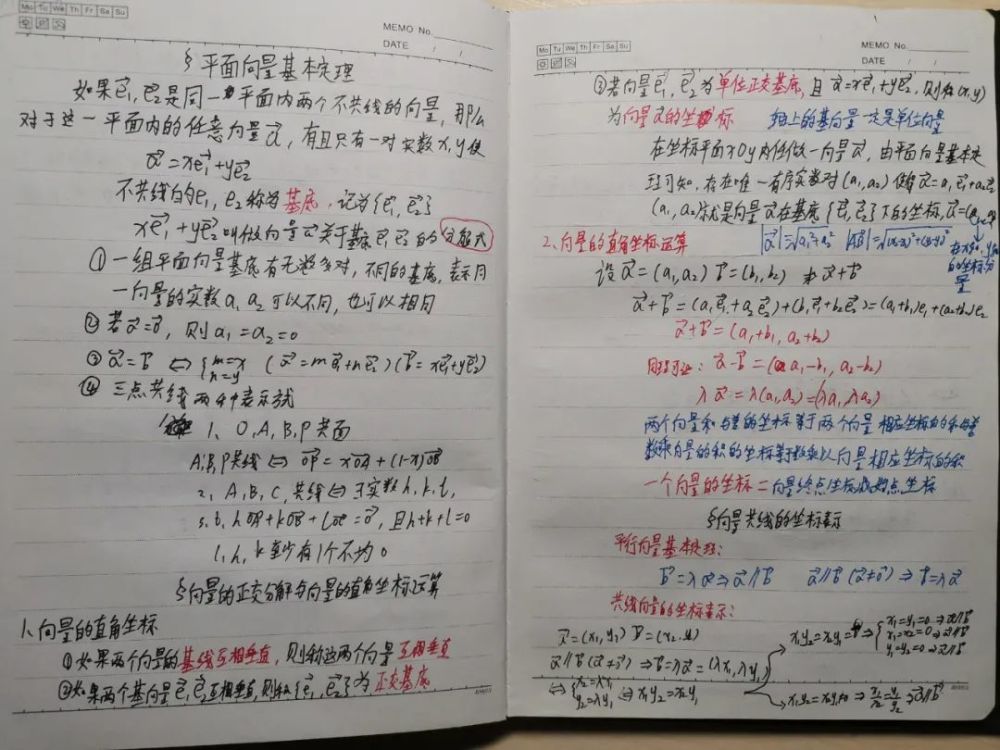 Mo Tu We Th Fr Sa Su
MEMO No.
DATE / /
§平面向量基本定理
如果e⃗₁,e⃗₂是同一平面内两个不共线的向量,那么
对于这一平面内的任意向量a⃗,有且只有一对实数x,y使
a⃗=xe⃗₁+ye⃗₂
不共线的e₁,e₂称为基底,记为{e⃗₁,e⃗₂}
xe⃗₁+ye⃗₂叫做向量a⃗关于基底e⃗₁e⃗₂的分解式
①一组平面向量基底有无数多对,不同的基底,表示同
一向量的实数a₁a₂可以不同,也可以相同
②若a⃗=0⃗,则a₁=a₂=0
③a⃗=b⃗ ⇔{m=x n=y (a⃗=me⃗₁+ne⃗₂)(b⃗=xe⃗₁+ye⃗₂)
④三点共线两种表示式
1、O,A,B,P共面
A,B,P共线⇔OP⃗=xOA⃗+(1-x)OB⃗
2,A,B,C,共线⇔∃实数h,k,l,
s.t,hOA⃗+kOB⃗+lOC⃗=0⃗,且h+k+l=0
l,h,k至少有1个不为0
§向量的正交分解与向量的直角坐标运算
1、向量的直角坐标
①如果两个向量的基线互相垂直,则称这两个向量互相垂直
②如果两个基向量e⃗₁e⃗₂互相垂直,则称{e⃗₁,e⃗₂}为正交基底
Mo Tu We Th Fr Sa Su
MEMO No.
DATE / /
③若向量e⃗₁,e⃗₂为单位正交基底,且a⃗=xe⃗₁+ye⃗₂,则称(x,y)
为向量a⃗的坐标 轴上的基向量一定是单位向量
在坐标平面xOy内任做一向量a⃗,由平面向量基本定
理可知,存在唯一有序实数对(a₁,a₂)使得a⃗=a₁e⃗₁+a₂e⃗₂
(a₁,a₂)就是向量a⃗在基底{e⃗₁,e⃗₂}下的坐标,a⃗=(a₁,a₂)
2、向量的直角坐标运算 |a⃗|=√a₁²+a₂²
的坐标分
量
设a⃗=(a₁,a₂) b⃗=(b₁,b₂) 求a⃗+b⃗
a⃗+b⃗=(a₁e⃗₁+a₂e⃗₂)+(b₁e⃗₁+b₂e⃗₂)=(a₁+b₁)e₁+(a₂+b₂)e₂
a⃗+b⃗=(a₁+b₁,a₂+b₂)
同理可证:a⃗-b⃗=(a₁-b₁,a₂-b₂)
λa⃗=λ(a₁,a₂)=(λa₁,λa₂)
两个向量和与差的坐标等于两个向量相应坐标的和与差
数乘向量的积的坐标等于数乘以向量相应坐标的积
一个向量的坐标=向量终点坐标减始点坐标
§向量共线的坐标表示
平行向量基本定理:
b⃗=λa⃗⇒a⃗∥b⃗ a⃗∥b⃗(a⃗≠0)⇒b⃗=λa⃗
共线向量的坐标表示:
a⃗=(x₁,y₁) b⃗=(x₂,y₂)
x₁y₂=x₂y₁=0⇒{x₁=y₁=0⇒a⃗∥b⃗
x₁=x₂=0⇒a⃗∥b⃗
y₁=y₂=0⇒a⃗∥b⃗
a⃗∥b⃗(a⃗≠0⃗)⇒b⃗=λa⃗=(λx₁,λy₁)
⇔{x₂=λx₁ y₂=λy₁ ⇔x₁y₂=x₂y₁
x₁y₂=x₂y₁≠0⇒x₁/x₂=y₁/y₂⇒a⃗∥b⃗